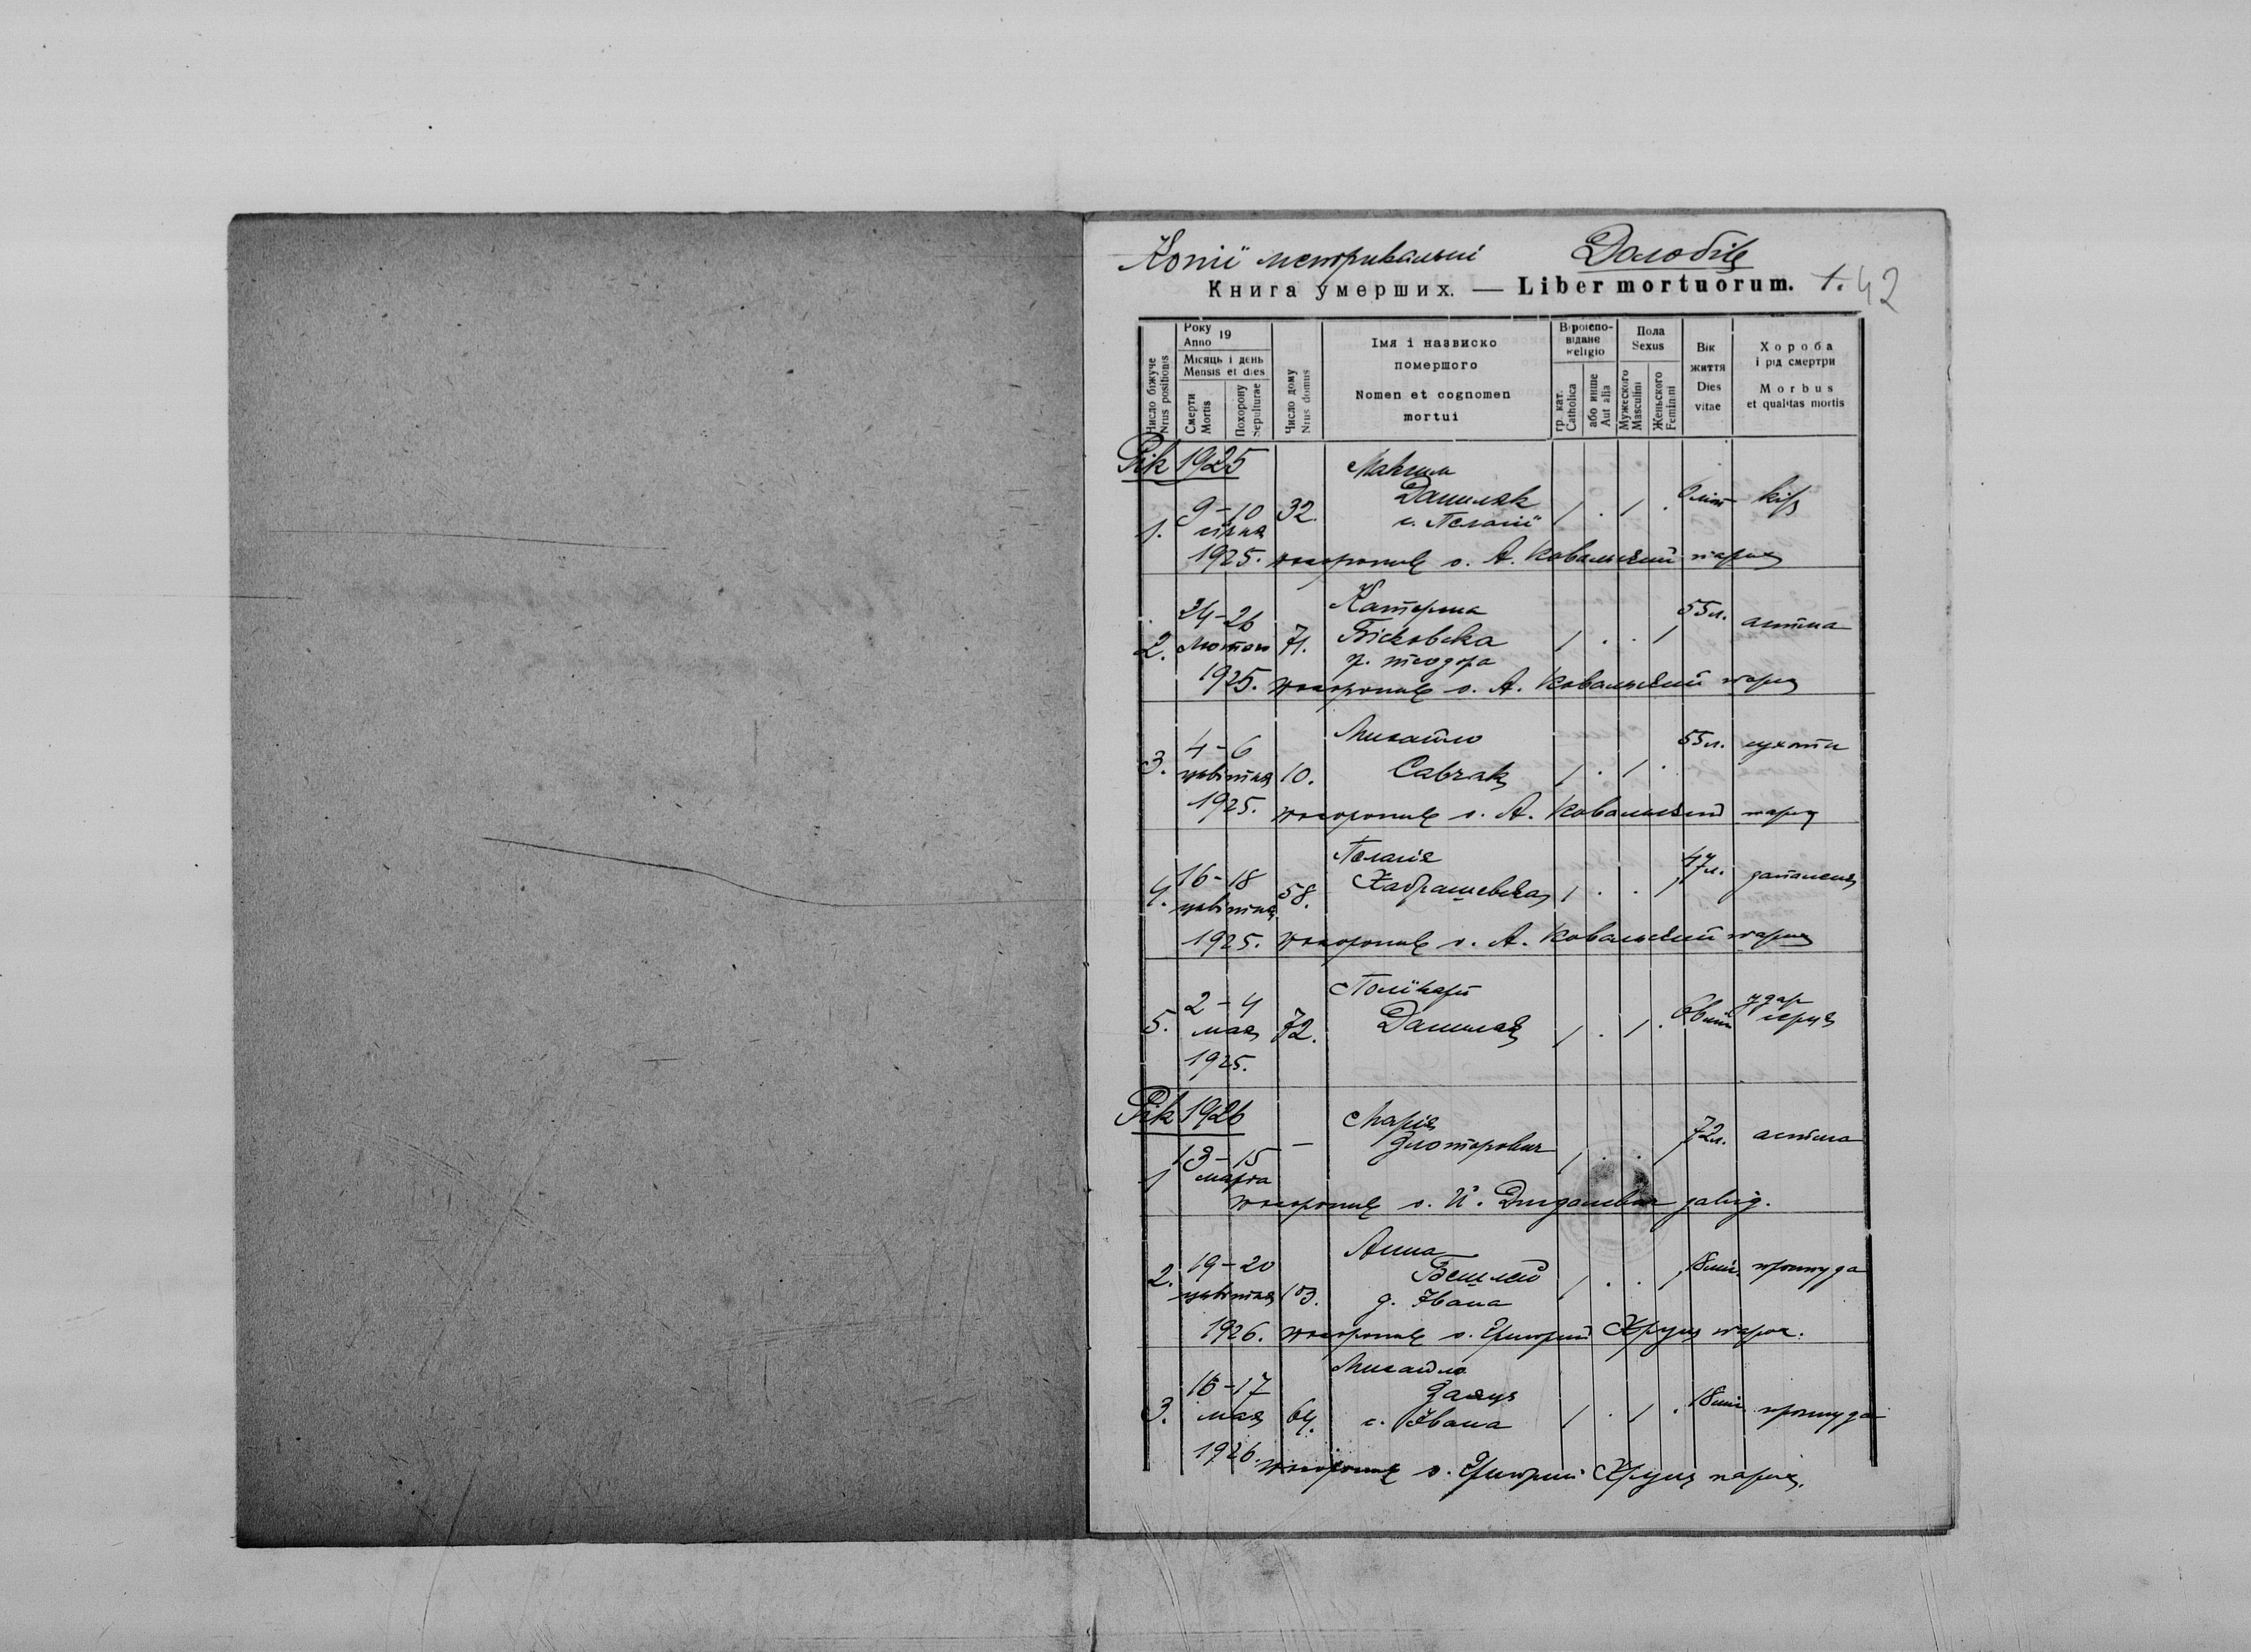 Копії метрикальні Долобів
Книга умерших. — Liber mortuorum. 1. 42
Число біжуче
Nrus positionis
Року
Anno 19
Місяць і день
Mensis et dies
Смерти
Mortis
Похорону
Sepulturae
Число дому
Nrus domus
Імя і назвиско
помершого
Nomen et cognomen
mortui
Віроіспо-
відане
Religio
гр. кат.
Catholica
або инше
Aut alia
Пола
Sexus
Мужеского
Masculini
Женьского
Feminini
Вік
життя
Dies
vitae
Хороба
і рід смертри
Morbus
et qualitas mortis
Рік 1925
1. 9-10 січня 32. Максим
Даниляк
с. Пелагії
/ . / . 6 літ кір
1925. похоронив о. А. Ковальский парох
2. 24-26 Лютого 71. Катерина
Бісковска
р. теодора
/ . . / 55 л. астма
1925. похоронив о. А. Ковальский парох
3. 4-6 цвітня 10. Михайло
Савчак
/ . / . 55 л. сухоти
1925. похоронив о. А. Ковальский парох
4. 16-18 цвітня 58. Пелагія
Хабрашевска
/ . . / 47 л. запаленя
1925. похоронив о. А. Ковальский парох
5. 2-4 мая 72. Полїкарп
Даниляк
/ . / . удар
серця
1925.
Рік 1926
1 13-15 марта — Марія
Злотарович
/ . . / 72 л. астма
похоронив о. И. завід.
2. 19-20 цвітня 103. Анна
Бешлей
д. Івана
/ . . / 18 міс. простуда
1926. похоронив о. Григорий Хрущ парох.
3. 16-17 мая 64. Михайло
Заяць
с. Івана
/ . / . 18 міс. простуда
1926. похоронив о. Григорий Хрущ парох.